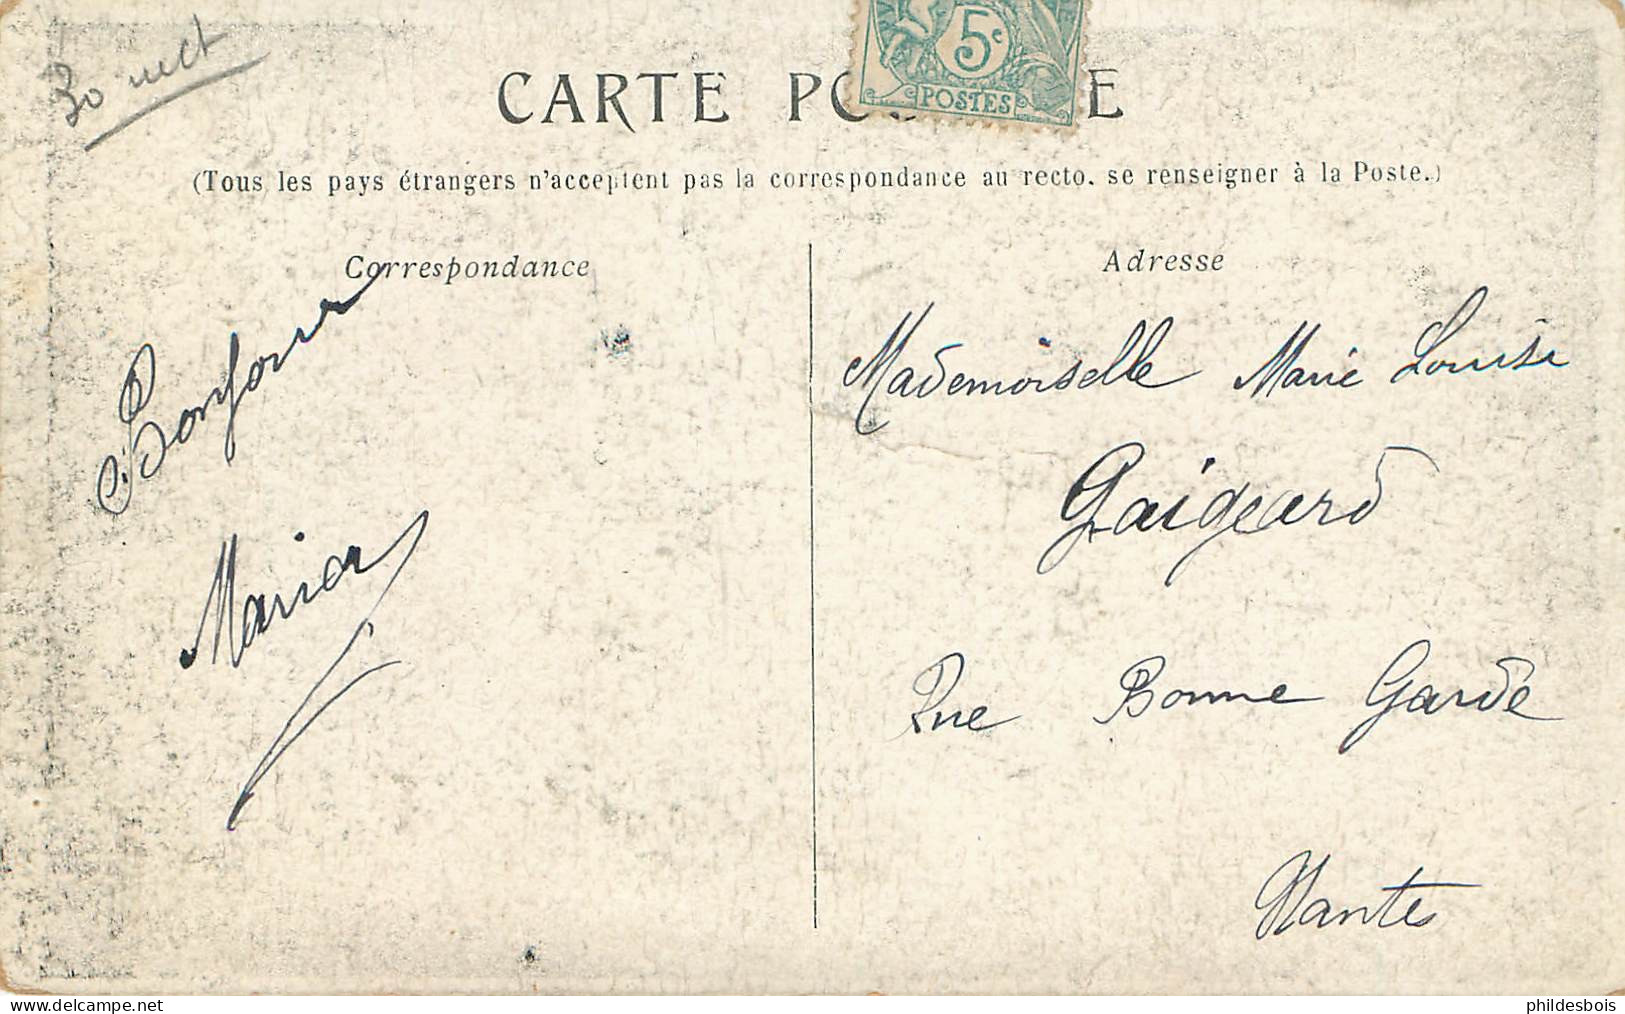 30 nect
5c
POSTES
CARTE PO E
(Tous les pays étrangers n'acceptent pas la correspondance au recto. se renseigner à la Poste.)
Correspondance
Adresse
Bonjour
Maria
Mademoiselle Marie Louise
Gaigeard
Rue Bonne Garde
Nantes
delcampe.net
phildesbois